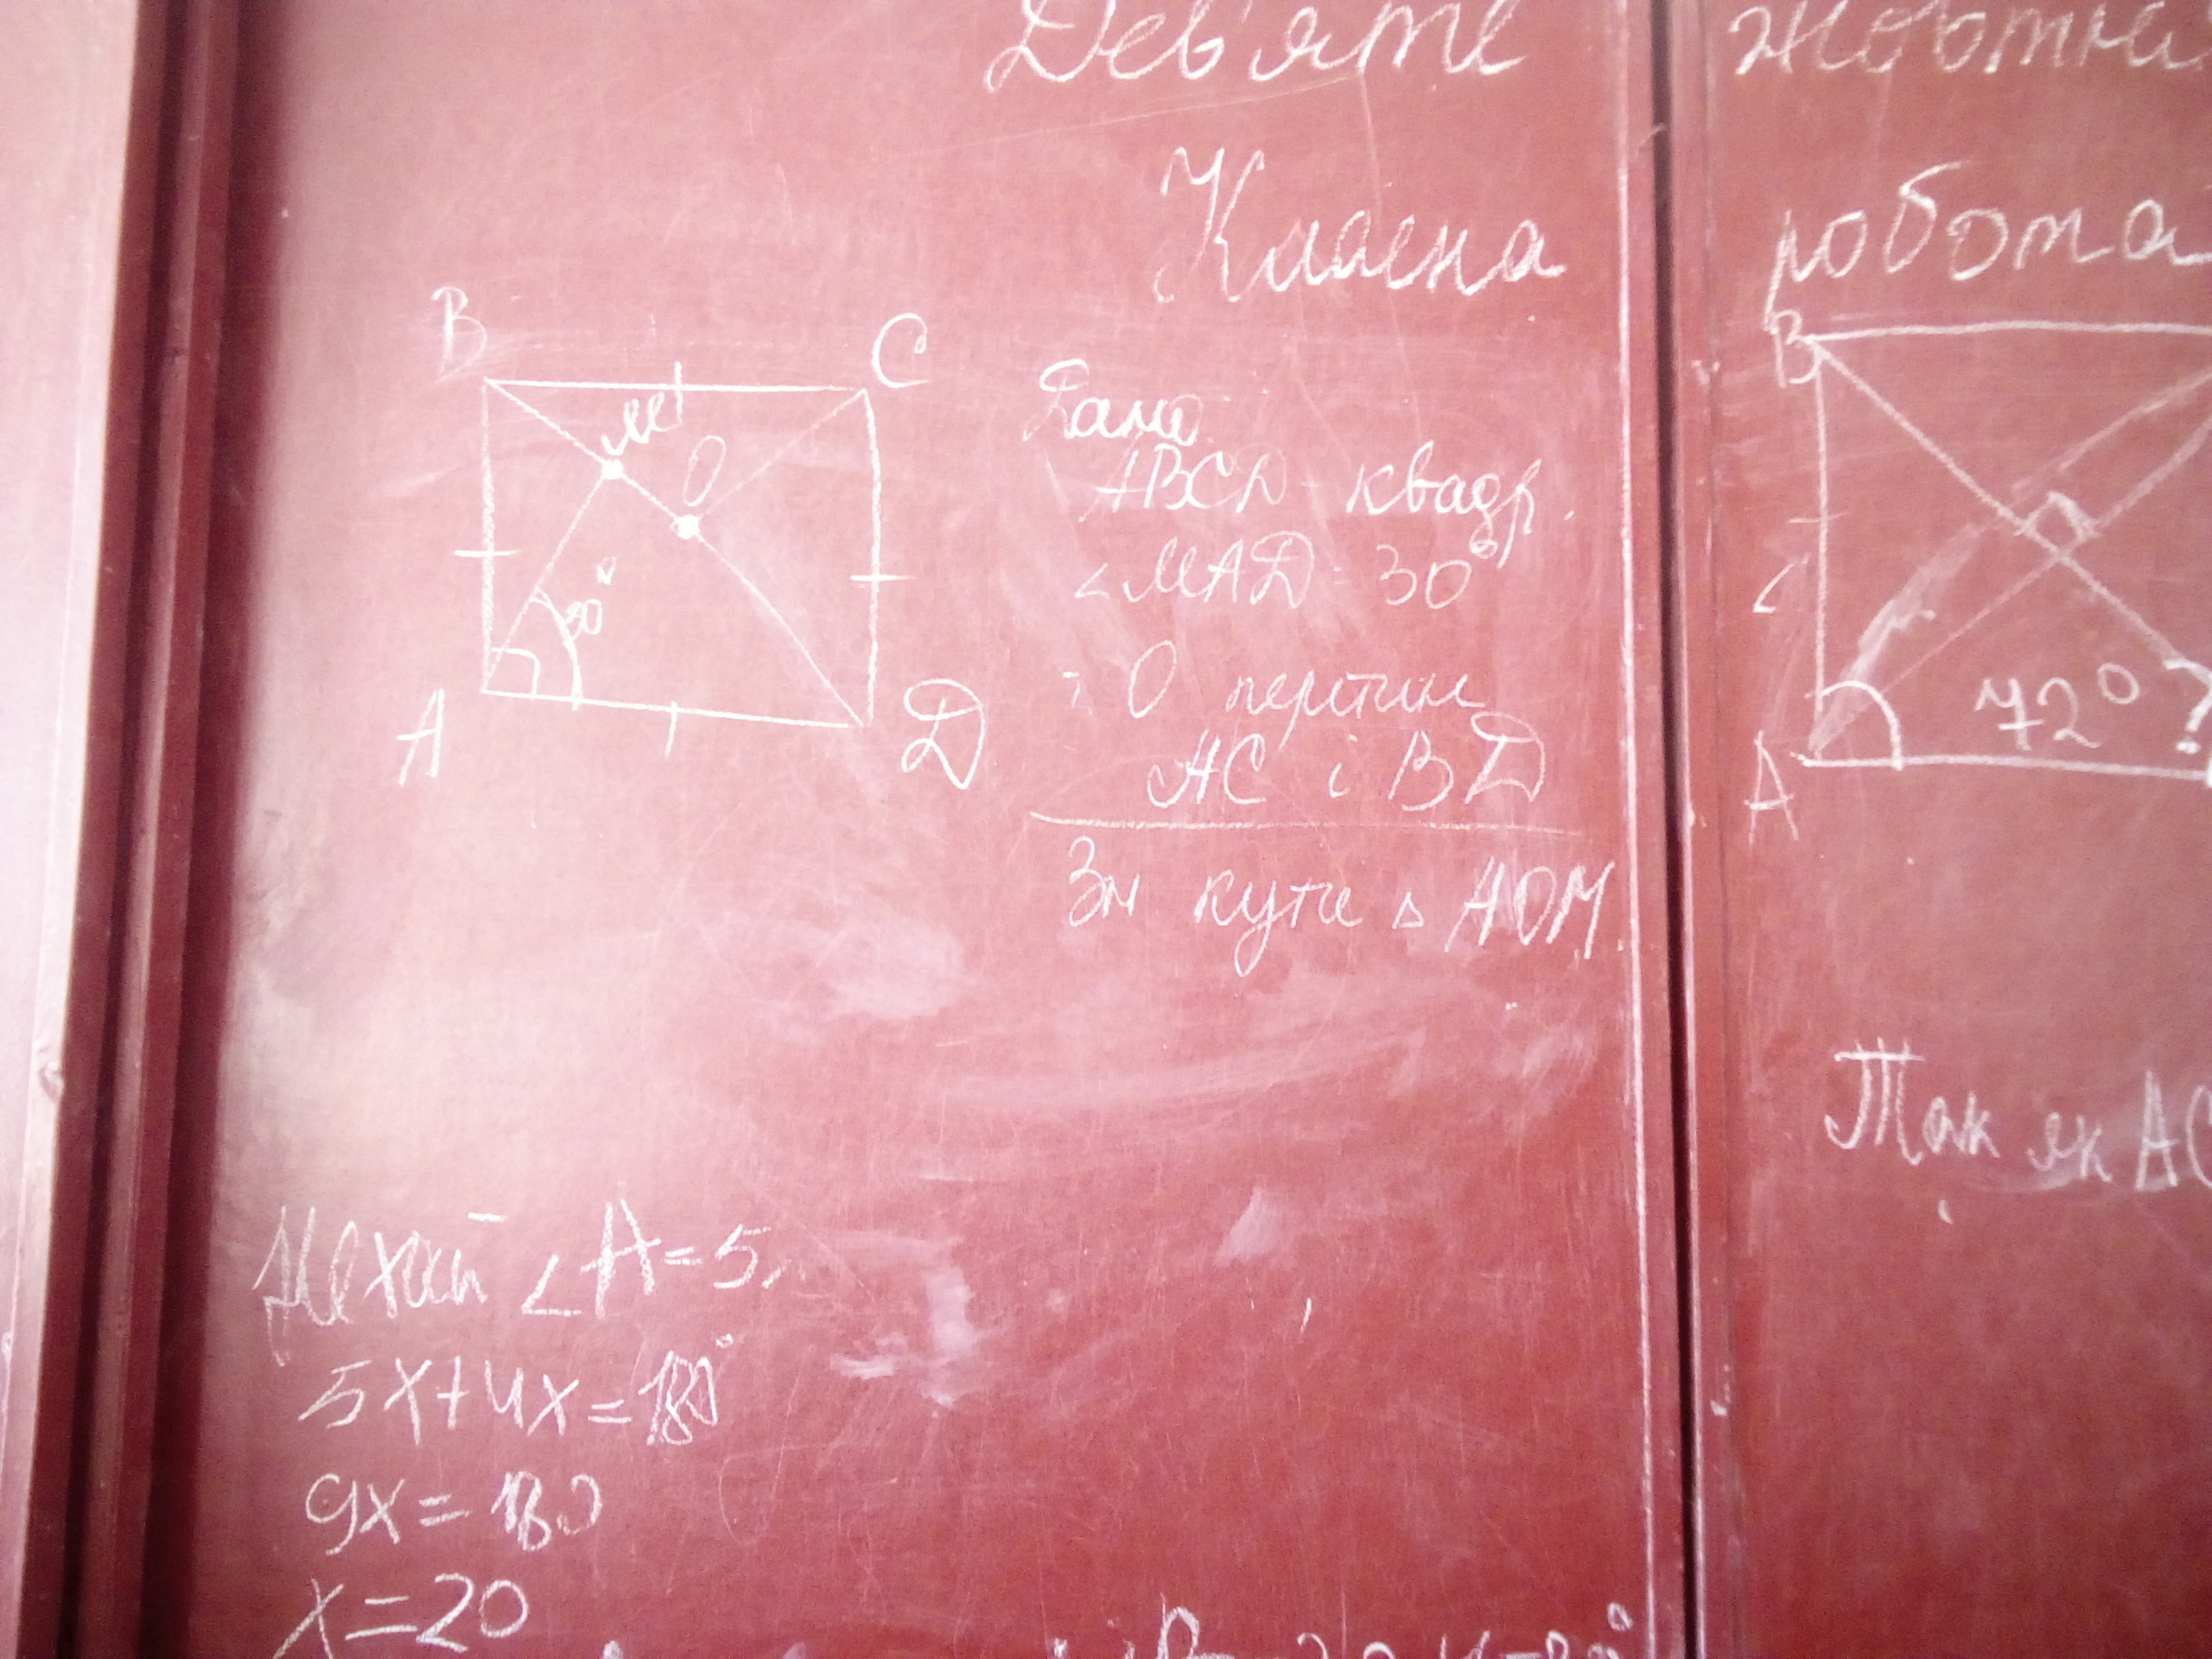 Дев'яте жовтня
Класна робота
B
C
M
O
30°
A
D
Дано:
ABCD - квадр.
∠MAD = 30°
т. O перетин
AC і BD
Зн кути △ AOM
B
A
72°
?
Так як AC
Нехай ∠A=5
5x+4x=180°
9x=180
x=20